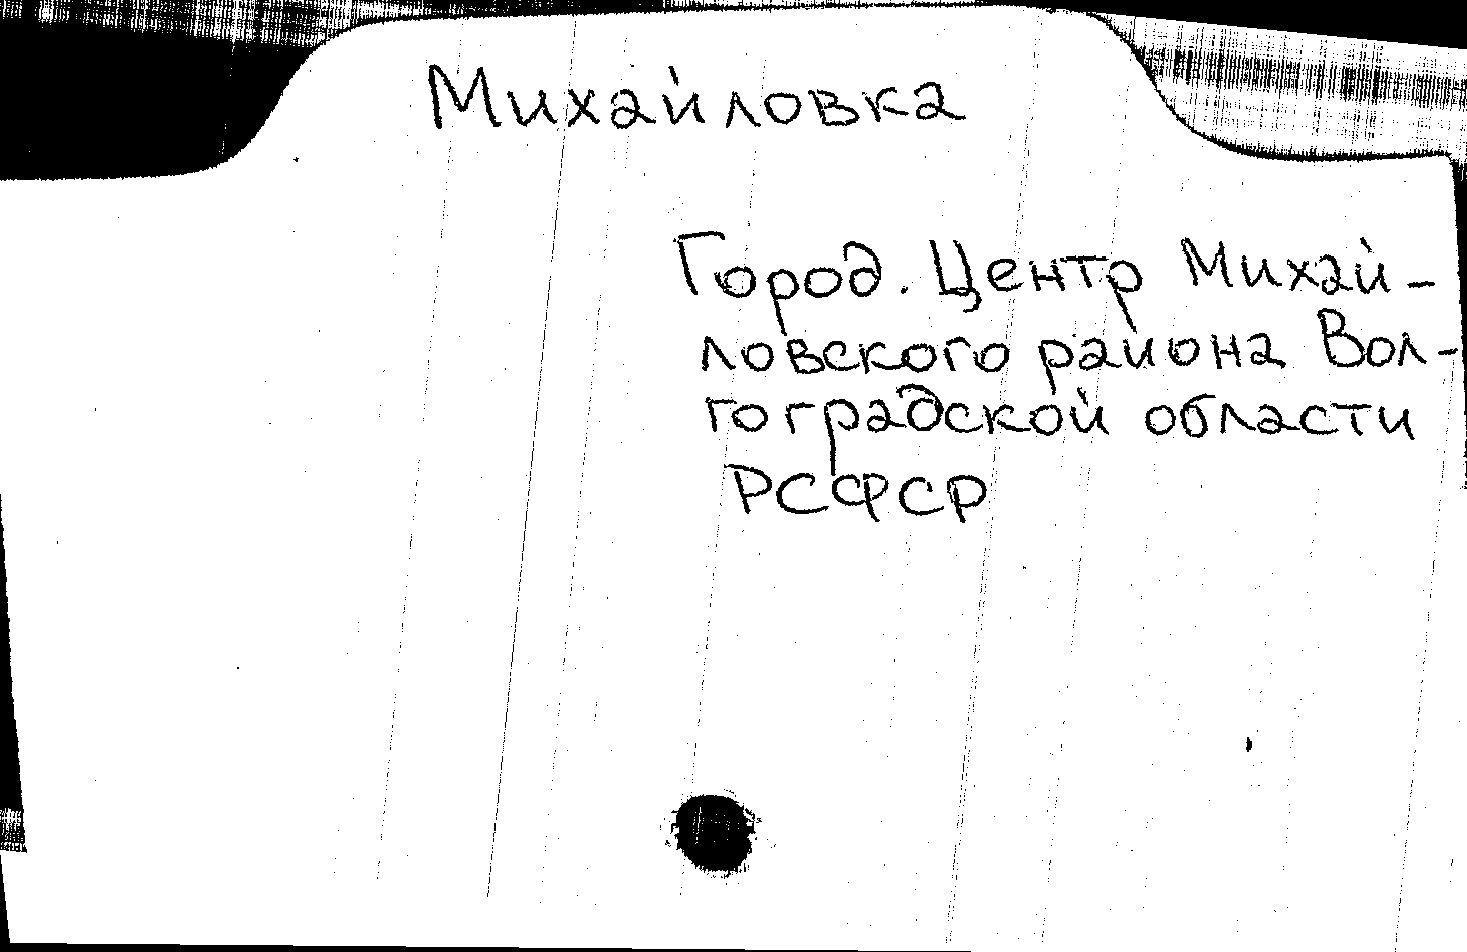 Михайловка
Город. Центр Михай-
ловского района Вол-
гоградской области
РСФСР